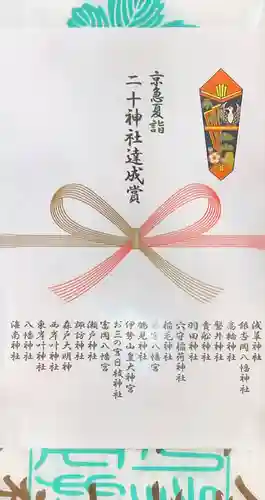 京急夏詣
二十神社達成賞
浅草神社
銀杏岡八幡神社
高輪神社
磐井神社
貴船神社
羽田神社
穴守稲荷神社
稲毛神社
八幡宮
鶴見神社
伊勢山皇大神宮
お三の宮日枝神社
富岡八幡宮
瀬戸神社
諏訪神社
森戸大明神
西岸叶神社
東岸叶神社
八幡神社
海南神社